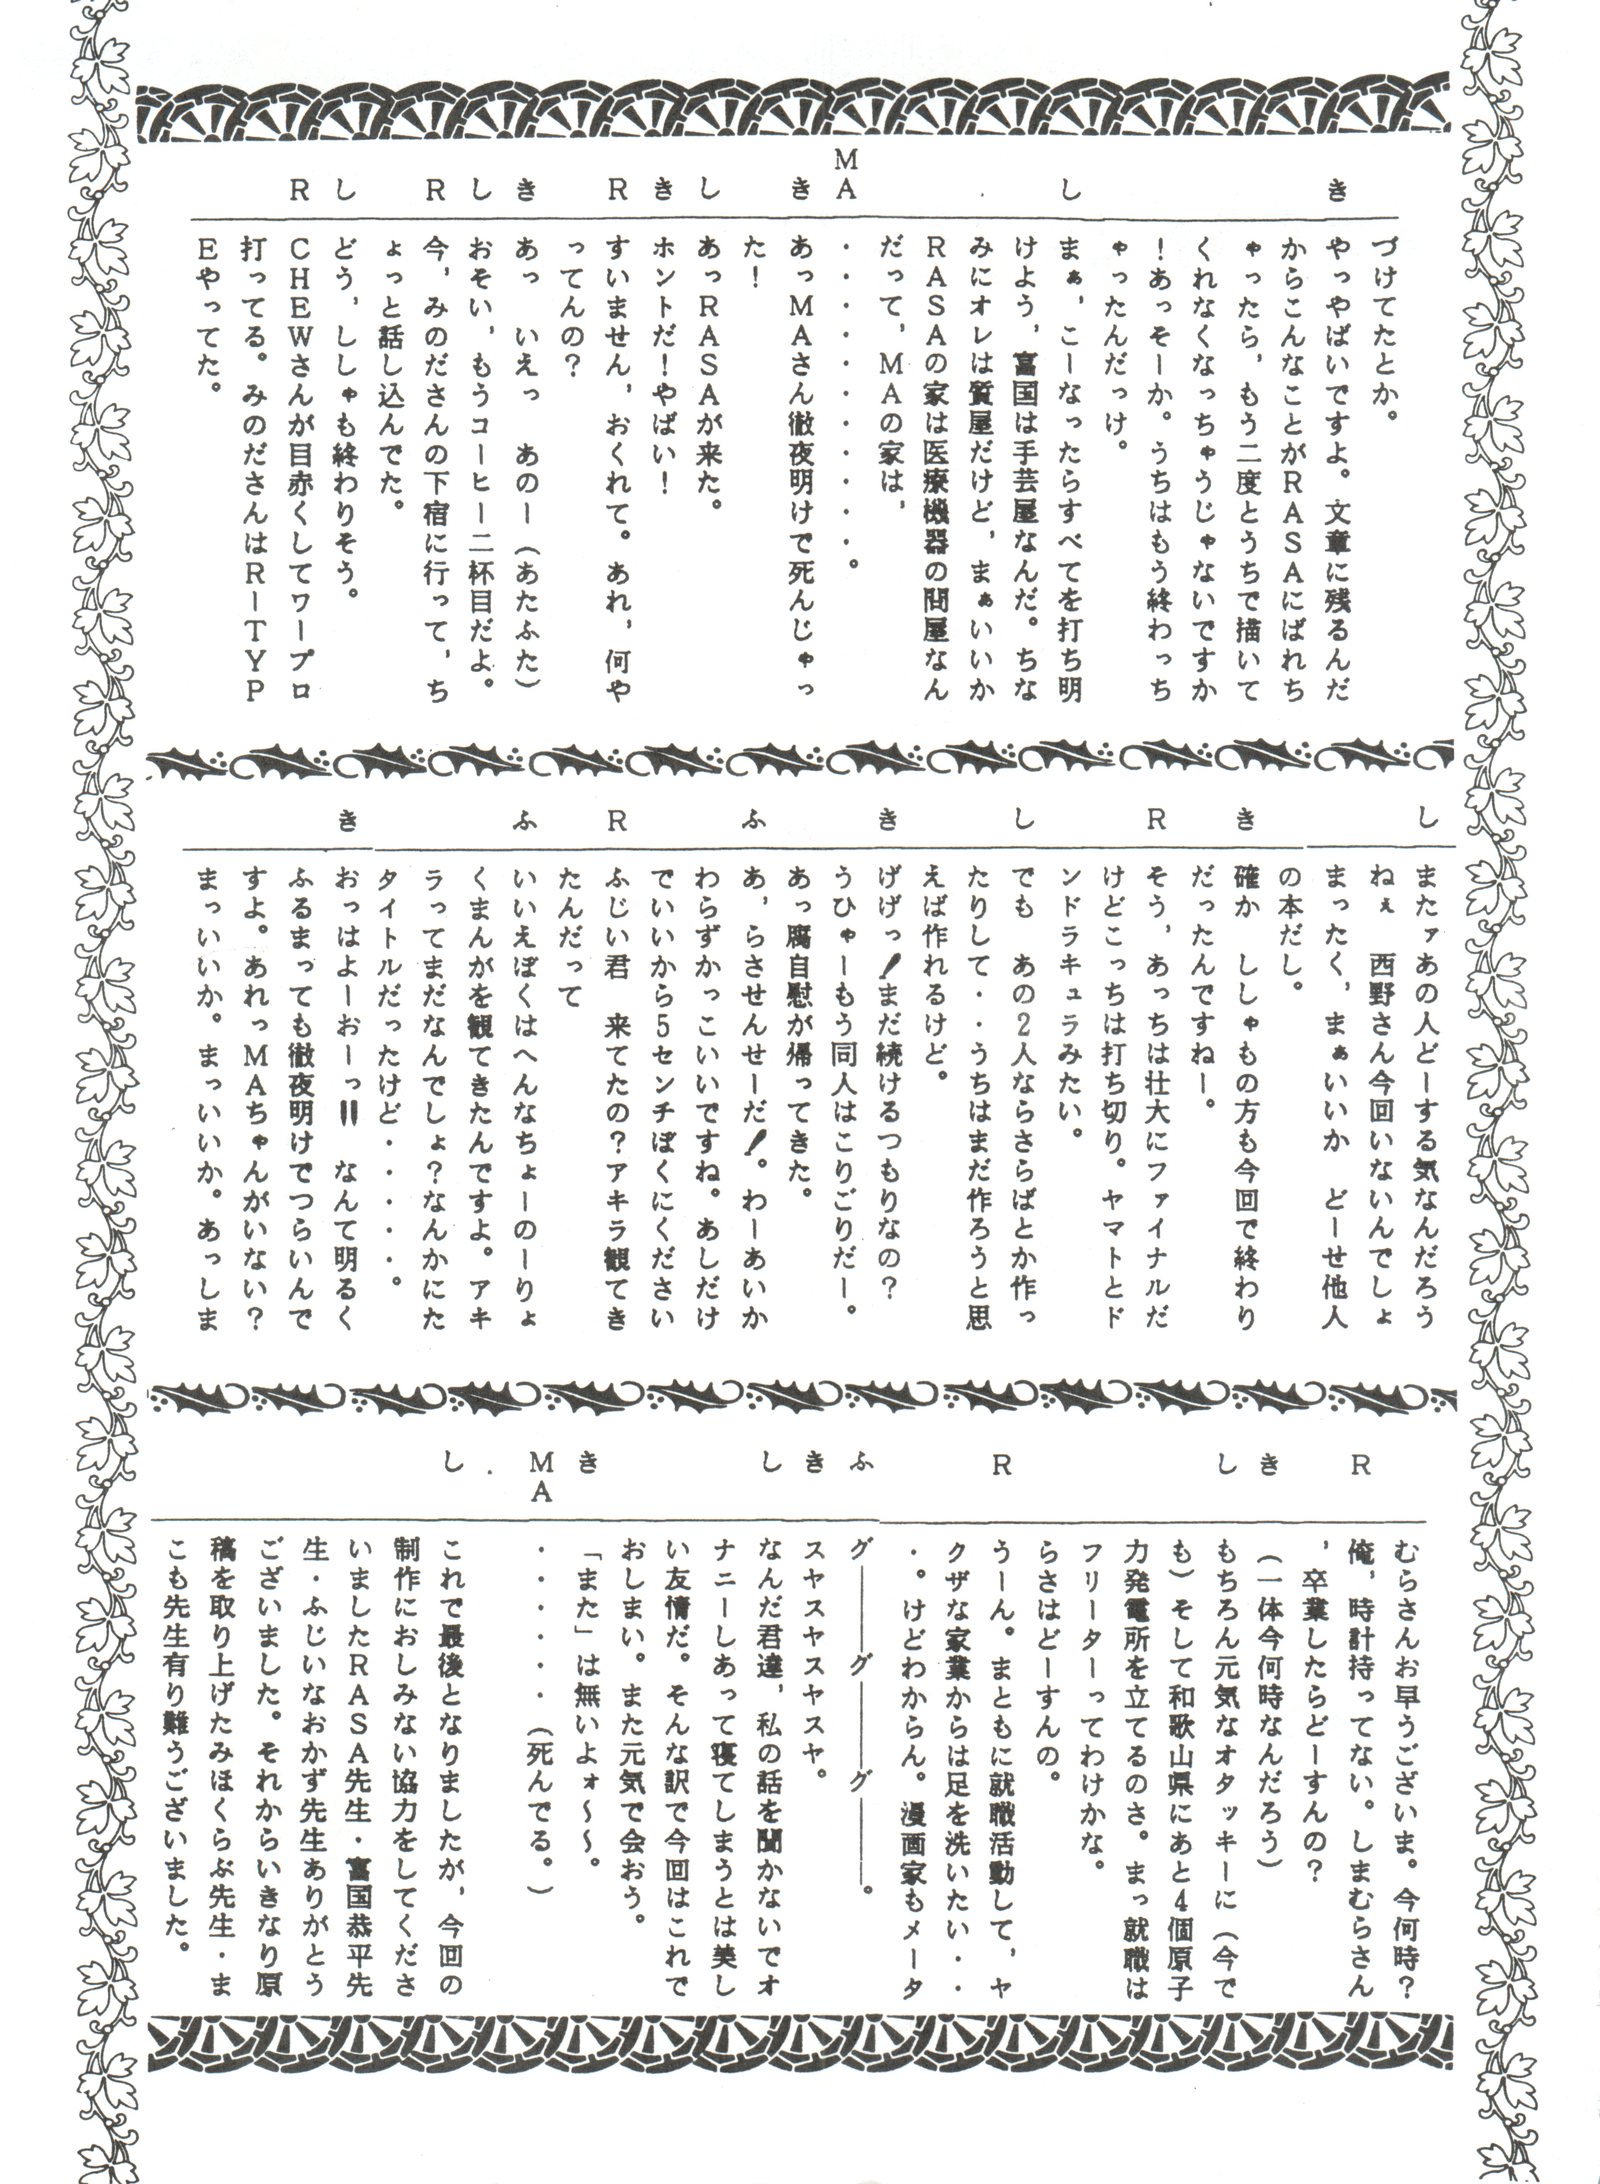 づけてたとか。
き
やっやばいですよ。文章に残るんだ
からこんなことがRASAにばれち
ゃったら，もう二度とうちで描いて
くれなくなっちゃうじゃないですか
！あっそーか。うちはもう終わっち
ゃったんだっけ。
し
まぁ，こーなったらすべてを打ち明
けよう，富国は手芸屋なんだ。ちな
みにオレは質屋だけど，まぁいいか
RASAの家は医療機器の問屋なん
だって，MAの家は，
MA
・・・・・・・・・・・。
き
あっMAさん徹夜明けで死んじゃっ
た！
し
あっRASAが来た。
き
ホントだ！やばい！
R
すいません，おくれて。あれ，何や
ってんの？
き
あっ　いえっ　あのー（あたふた）
し
おそい，もうコーヒー二杯目だよ。
R
今，みのださんの下宿に行って，ち
ょっと話し込んでた。
し
どう，ししゃも終わりそう。
R
CHEWさんが目赤くしてワープロ
打ってる。みのださんはR－TYP
Eやってた。
し
またァあの人どーする気なんだろう
ねぇ　西野さん今回いないんでしょ
まったく，まぁいいか　どーせ他人
の本だし。
き
確か　ししゃもの方も今回で終わり
だったんですねー。
R
そう，あっちは壮大にファイナルだ
けどこっちは打ち切り。ヤマトとド
ンドラキュラみたい。
し
でも　あの2人ならさらばとか作っ
たりして・・うちはまだ作ろうと思
えば作れるけど。
き
げげっ！まだ続けるつもりなの？
うひゃーもう同人はこりごりだー。
あっ腐自慰が帰ってきた。
ふ
あ，らさせんせーだ！。わーあいか
わらずかっこいいですね。あしだけ
でいいから5センチぼくにください
R
ふじい君　来てたの？アキラ観てき
たんだって
ふ
いいえぼくはへんなちょーのーりょ
くまんがを観てきたんですよ。アキ
ラってまだなんでしょ？なんかにた
タイトルだったけど・・・・・。
き
おっはよーおーっ！！　なんて明るく
ふるまっても徹夜明けでつらいんで
すよ。あれっMAちゃんがいない？
まっいいか。まっいいか。あっしま
むらさんお早うございま。今何時？
R
俺，時計持ってない。しまむらさん
，卒業したらどーすんの？
き
（一体今何時なんだろう）
し
もちろん元気なオタッキーに（今で
も）そして和歌山県にあと4個原子
力発電所を立てるのさ。まっ就職は
フリーターってわけかな。
らさはどーすんの。
R
うーん。まともに就職活動して，ヤ
クザな家業からは足を洗いたい・・
・。けどわからん。漫画家もメータ
ふ
グ――――グ――――グ――――。
き
スヤスヤスヤスヤ。
し
なんだ君達，私の話を聞かないでオ
ナニーしあって寝てしまうとは美し
い友情だ。そんな訳で今回はこれで
おしまい。また元気で会おう。
き
「また」は無いよォ～～。
MA
・・・・・・（死んでる。）
し
これで最後となりましたが，今回の
制作におしみない協力をしてくださ
いましたRASA先生・富国恭平先
生・ふじいなおかず先生ありがとう
ございました。それからいきなり原
稿を取り上げたみほくらぶ先生・ま
こも先生有り難うございました。